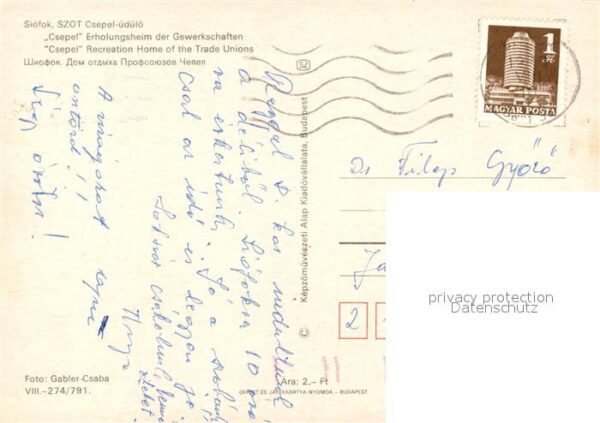 Siófok. SZOT Csepel-üdülő
„Csepel" Erholungsheim der Gewerkschaften
"Csepel" Recreation Home of the Trade Unions
Шиофок. Дом отдыха Профсоюзов Чепел
SZ
1
Ft
MAGYAR POSTA
Reggel 7. kor indultunk
a déliből. Siófokra 10 óra
ra érkeztünk. Jó a szobánk
csak az idő is legyen jó
Sokszor csókollak
A virágokat
öntözd!!
Dr Fülöp Győző
2
privacy protection
Datenschutz
© Képzőművészeti Alap Kiadóvállalata, Budapest
Foto: Gabler-Csaba
VIII.-274/791.
Ára: 2,- Ft
OFFSET ÉS JÁTÉKKÁRTYA NYOMDA - BUDAPEST